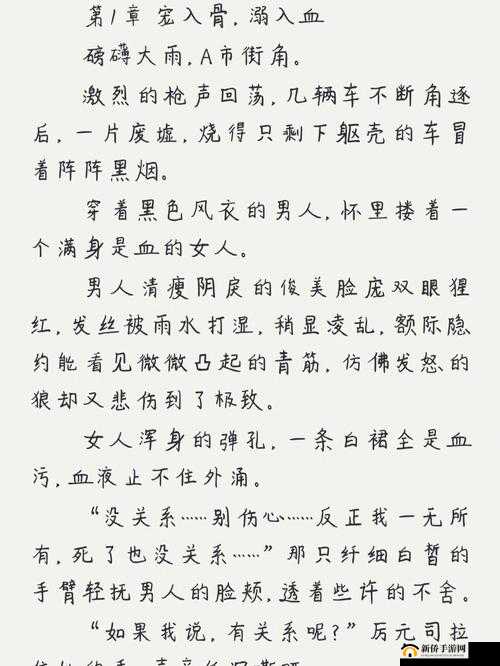 第1章 宠入骨，溺入血
磅礴大雨，A市街角。
激烈的枪声回荡，几辆车不断角逐
后，一片废墟，烧得只剩下躯壳的车冒
着阵阵黑烟。
穿着黑色风衣的男人，怀里搂着一
个满身是血的女人。
男人清瘦阴戾的俊美脸庞双眼猩
红，发丝被雨水打湿，稍显凌乱，额际隐
约能看见微微凸起的青筋，仿佛发怒的
狼却又悲伤到了极致。
女人浑身的弹孔，一条白裙全是血
污，血液止不住外涌。
“没关系……别伤心……反正我一无所
有，死了也没关系……”那只纤细白皙的
手臂轻抚男人的脸颊，透着些许的不舍。
“如果我说，有关系呢？”厉元司拉
新侨手游网